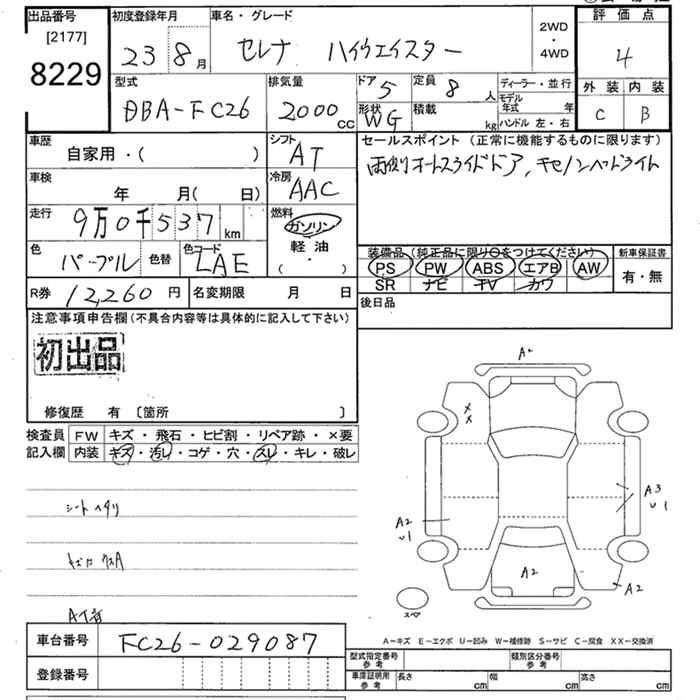 出品番号
[2177]
8229
初度登録年月
23 8月
車名・グレード
セレナ ハイウェイスター
2WD
・
4WD
評価点
4
外装 内装
C B
型式
DBA-FC26
排気量
2000cc
ドア 5
定員 8人
形状 WG
積載 kg
ディーラー・並行
モデル年式 年
ハンドル 左・右
車歴
自家用・( )
シフト
AT
セールスポイント (正常に機能するものに限ります)
両側オートスライドドア, キセノンヘッドライト
車検
年 月( 日)
冷房
AAC
走行
9万0千537km
燃料
ガソリン
軽油
( ・ )
色
パープル
色替
色コード
LAE
装備品 (純正品に限り○をつけてください)
PS PW ABS エアB AW
SR ナビ TV カワ
新車保証書
有・無
R券 12,260円
名変期限 月 日
後日品
注意事項申告欄(不具合内容等は具体的に記入して下さい)
初出品
修復歴 有 〔箇所 〕
検査員記入欄
FW キズ・飛石・ヒビ割・リペア跡・×要
内装 キズ・汚レ・コゲ・穴・スレ・キレ・破レ
シートヘタリ
A2
A3
U1
A2
U1
A2
A2
スペア
A-キズ E-エクボ U-凹み W-補修跡 S-サビ C-腐食 XX-交換済
車台番号 FC26-029087
登録番号
型式指定番号 参考
類別区分番号 参考
車庫証明用 参考
長さ cm 幅 cm 高さ cm